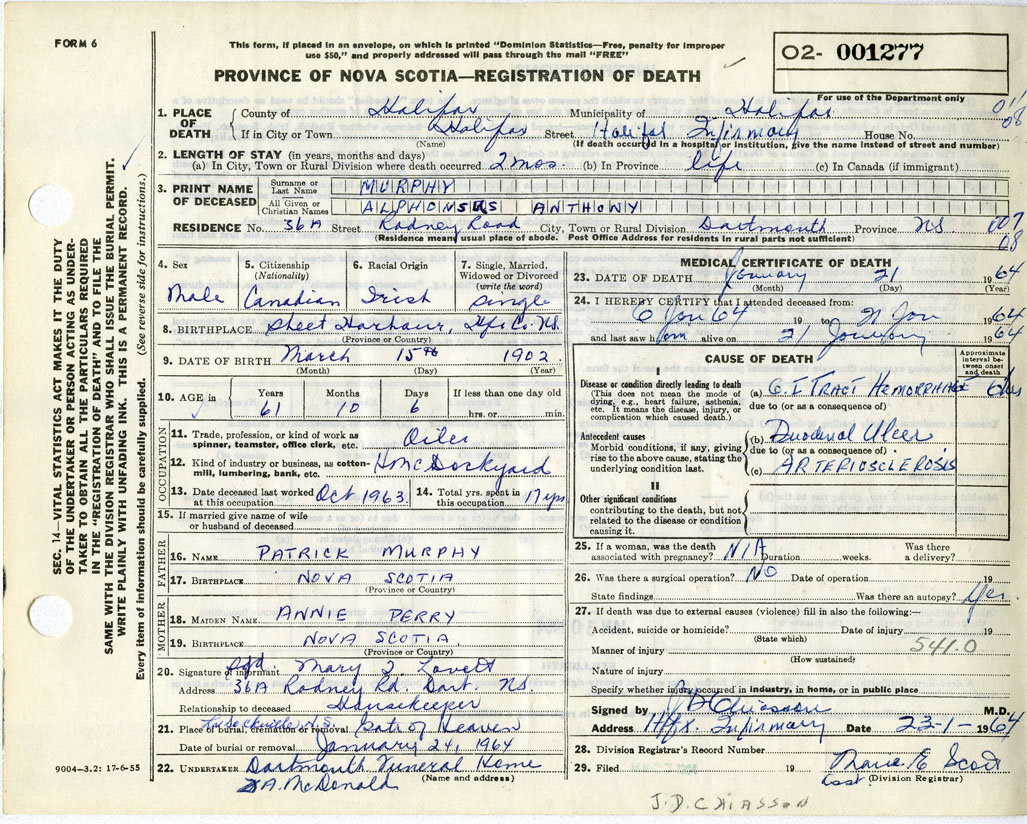 FORM 6
This form, if placed in an envelope, on which is printed "Dominion Statistics—Free, penalty for improper
use $50," and properly addressed will pass through the mail "FREE"
PROVINCE OF NOVA SCOTIA—REGISTRATION OF DEATH
O2- 001277
For use of the Department only
SEC. 14—VITAL STATISTICS ACT MAKES IT THE DUTY
OF THE UNDERTAKER OR PERSON ACTING AS UNDER-
TAKER TO OBTAIN ALL THE PARTICULARS REQUIRED
IN THE "REGISTRATION OF DEATH" AND TO FILE THE
SAME WITH THE DIVISION REGISTRAR WHO SHALL ISSUE THE BURIAL PERMIT.
WRITE PLAINLY WITH UNFADING INK. THIS IS A PERMANENT RECORD.
Every item of information should be carefully supplied. (See reverse side for instructions.)
1. PLACE OF DEATH County of Halifax Municipality of Halifax
If in City or Town Halifax Street Halifax Infirmary House No.
(Name) (If death occurred in a hospital or institution, give the name instead of street and number)
08
2. LENGTH OF STAY (in years, months and days)
(a) In City, Town or Rural Division where death occurred 2 mos. (b) In Province life (c) In Canada (if immigrant)
3. PRINT NAME OF DECEASED Surname or Last Name MURPHY
All Given or Christian Names ALPHONSUS ANTHONY
RESIDENCE No. 36A Street Rodney Road City, Town or Rural Division Dartmouth Province NS
(Residence means usual place of abode. Post Office Address for residents in rural parts not sufficient)
007
08
4. Sex 5. Citizenship (Nationality) 6. Racial Origin 7. Single, Married, Widowed or Divorced (write the word)
Male Canadian Irish Single
8. BIRTHPLACE Sheet Harbour, Hfx Co. NS.
(Province or Country)
9. DATE OF BIRTH March 15th 1902.
(Month) (Day) (Year)
10. AGE in Years Months Days If less than one day old
61 10 6 hrs. or min.
OCCUPATION
11. Trade, profession, or kind of work as spinner, teamster, office clerk, etc. Oiler
12. Kind of industry or business, as cotton-mill, lumbering, bank, etc. HMC Dockyard
13. Date deceased last worked at this occupation Oct 1963 14. Total yrs. spent in this occupation 17 yrs
15. If married give name of wife or husband of deceased
FATHER
16. NAME PATRICK MURPHY
17. BIRTHPLACE NOVA SCOTIA
(Province or Country)
MOTHER
18. MAIDEN NAME ANNIE PERRY
19. BIRTHPLACE NOVA SCOTIA
(Province or Country)
20. Signature of informant Sgd. Mary J. Lovett
Address 36A Rodney Rd, Dart. NS.
Relationship to deceased Housekeeper
21. Place of burial, cremation or removal Gate of Heaven
N.S.
Date of burial or removal January 24, 1964
22. UNDERTAKER Dartmouth Funeral Home
(Name and address)
A. McDonald
9004—3.2: 17-6-55
MEDICAL CERTIFICATE OF DEATH
23. DATE OF DEATH January 21 1964
(Month) (Day) (Year)
24. I HEREBY CERTIFY that I attended deceased from:
6 Jan 64 19 to 21 Jan 1964
and last saw him alive on 21 January 1964
CAUSE OF DEATH
Approximate interval between onset and death
Disease or condition directly leading to death
(This does not mean the mode of dying, e.g., heart failure, asthenia, etc. It means the disease, injury, or complication which caused death.)
(a) G. I TRACT HEMORRHAGE
due to (or as a consequence of)
Antecedent causes
Morbid conditions, if any, giving rise to the above cause, stating the underlying condition last.
(b) Duodenal Ulcer
due to (or as a consequence of)
(c) ARTERIOSCLEROSIS
II
Other significant conditions
contributing to the death, but not related to the disease or condition causing it.
25. If a woman, was the death associated with pregnancy? N/A Duration weeks. Was there a delivery?
26. Was there a surgical operation? NO Date of operation 19
State findings Was there an autopsy? Yes
27. If death was due to external causes (violence) fill in also the following:—
Accident, suicide or homicide? Date of injury 19
(State which)
Manner of injury 541.0
(How sustained)
Nature of injury
Specify whether injury occurred in industry, in home, or in public place
Signed by J D Chiasson M.D.
Address Hfx. Infirmary Date 23-1-1964
28. Division Registrar's Record Number
29. Filed 19 Scott
(Division Registrar)
J.D. CHIASSON